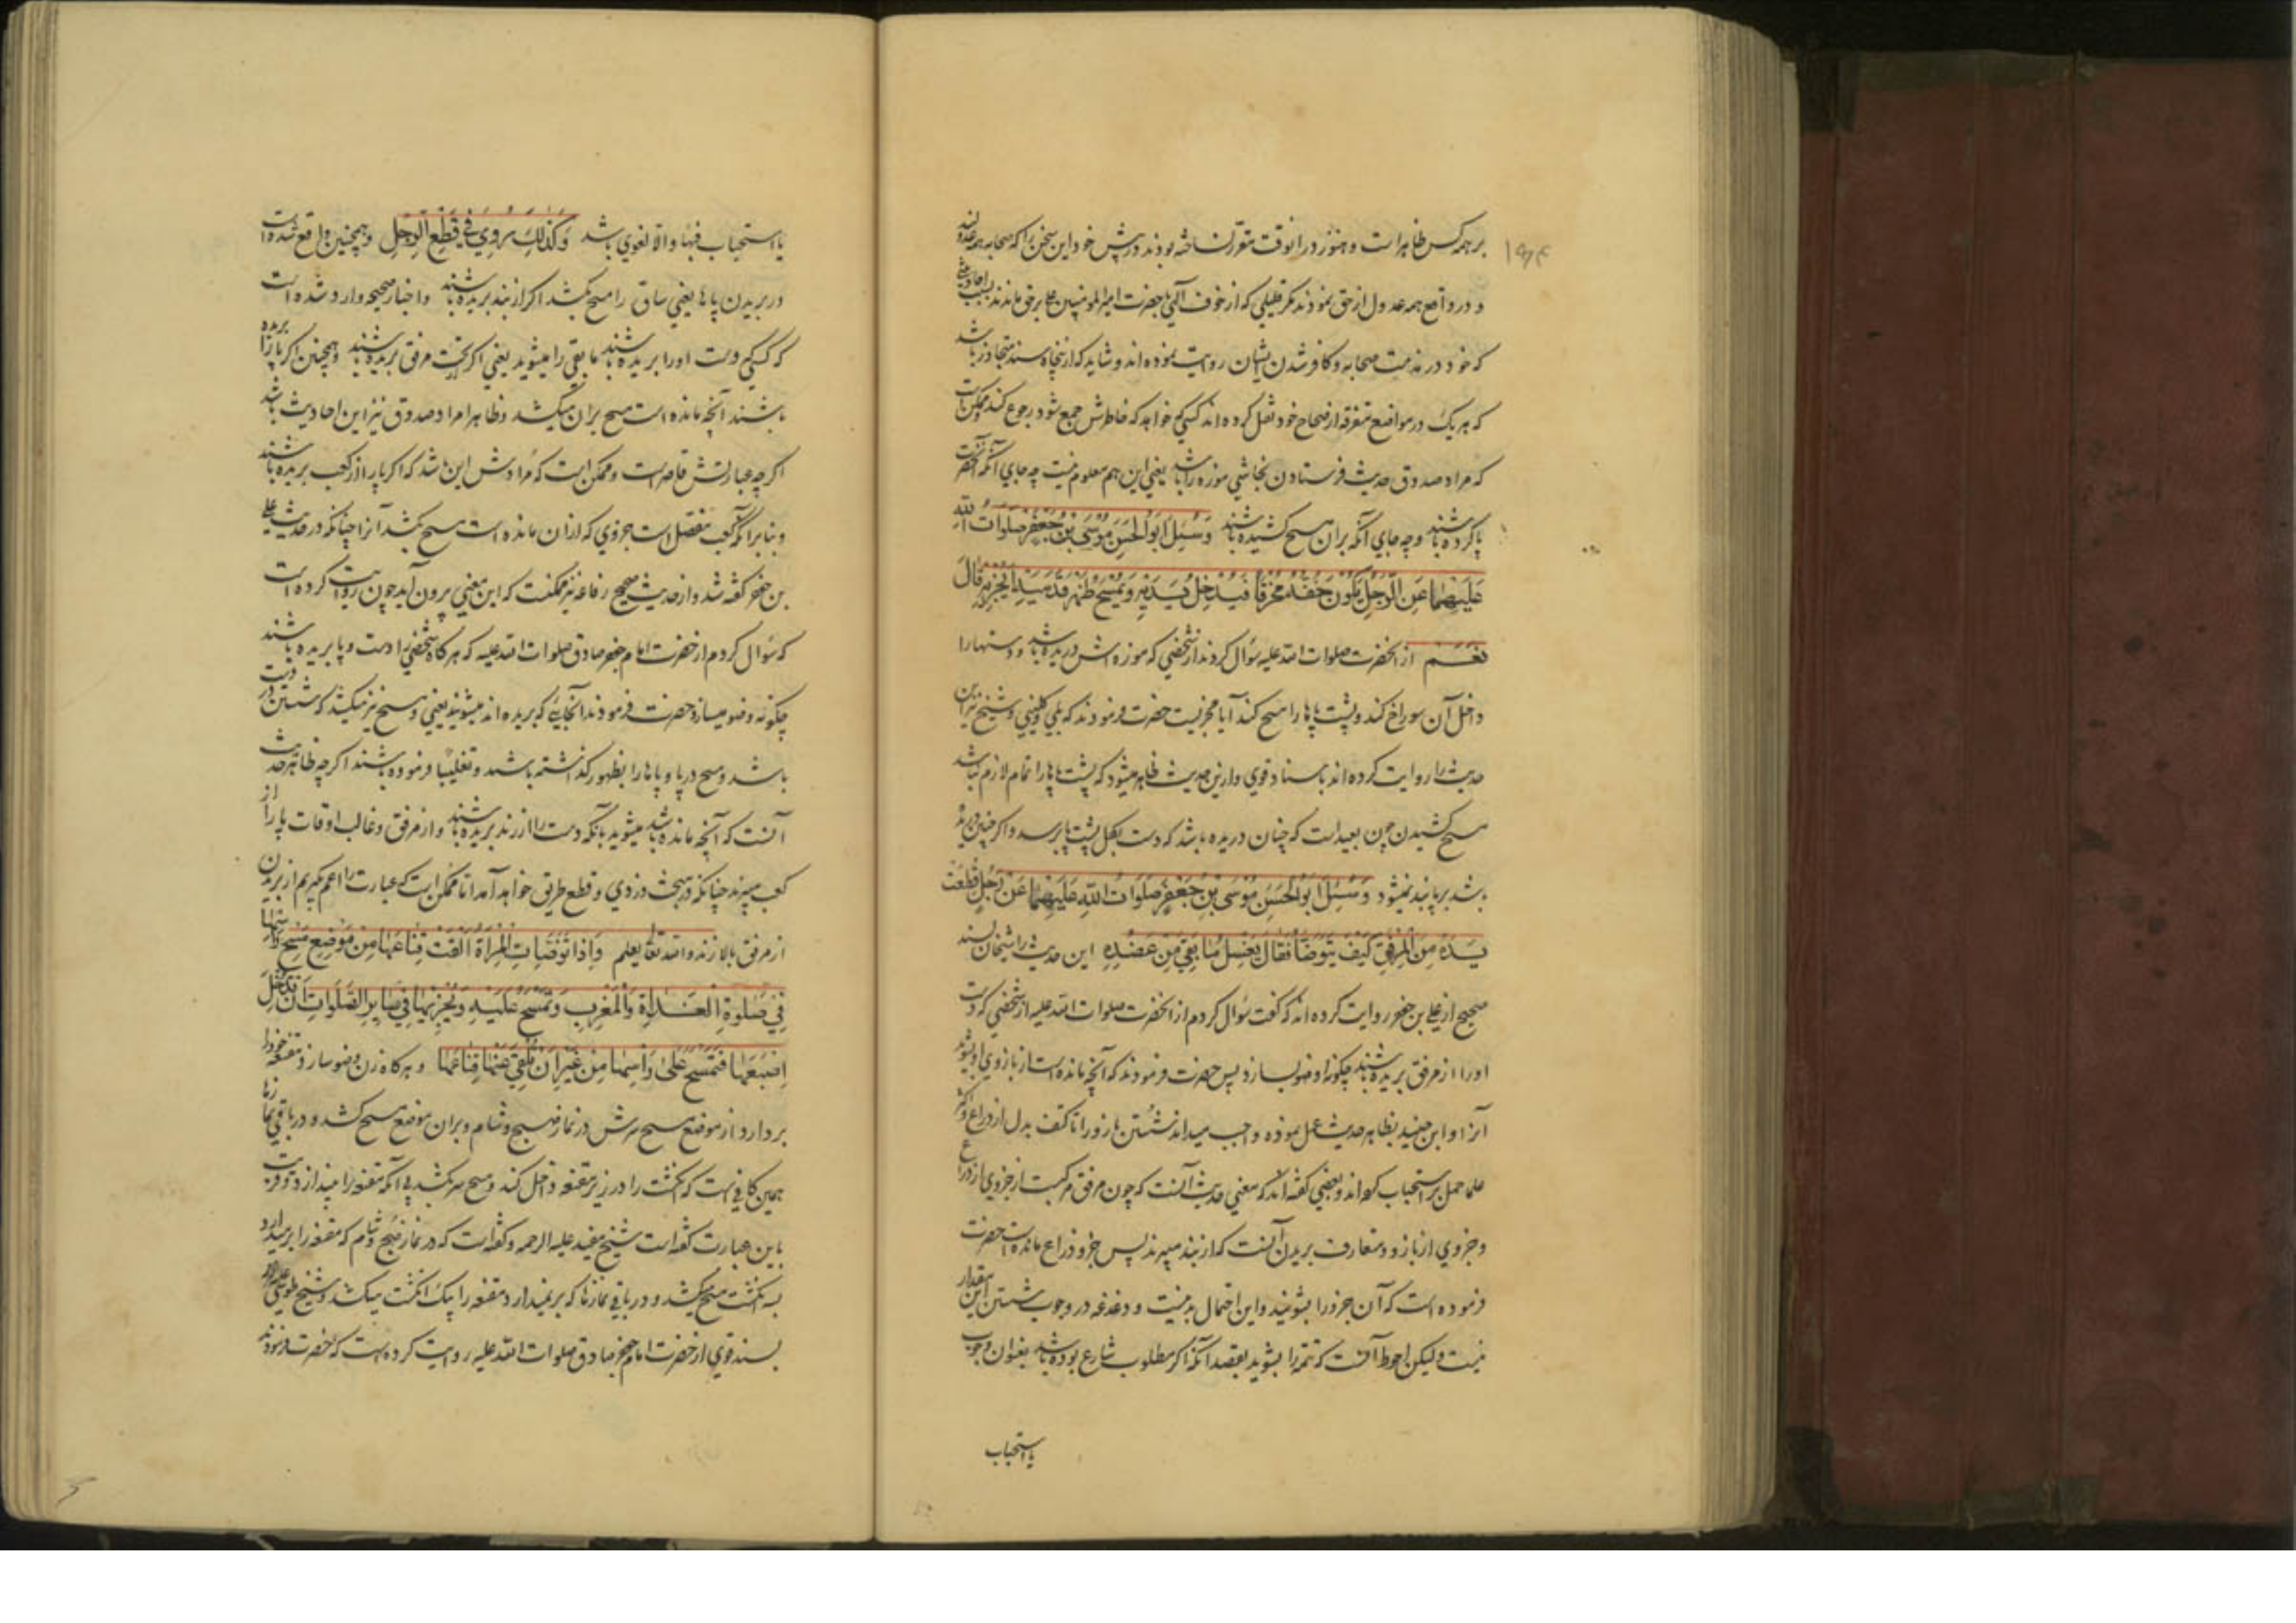 بر همه کس ظاهر است و هنوز در آنوقت مقرر نساخته بودند در پیش خود این سخن را که صحابه همه عدولند
و در واقع همه عدول از حق نمودند مگر قلیلی که از خوف آلهی با حضرت امیر المومنین علی بر حق ماندند بسبب احادیثی
که خود در مذمت صحابه و کافر شدن ایشان روایت نموده اند و شاید که از پنجاه سند متجاوز باشد
که هر یک در مواضع متفرقه از صحاح خود نقل کرده اند کسی که خواهد که خاطرش جمع شود رجوع کند و ممکن است
که مراد صدوق حدیث فرستادن نجاشی موزه را باشد یعنی این هم معلوم نیست چه جای آنکه آنحضرت
پا کرده باشند و چه جای آنکه بر آن مسح کشیده باشند وَسُئِلَ اَبُو الحَسَنِ مُوسَی بْنُ جَعْفَرٍ صَلَوَاتُ اللهِ
عَلَیْهِمَا عَنِ الرَّجُلِ یَکُونُ خُفُّهُ مُخَرَّقًا فَیُدْخِلُ یَدَیْهِ وَیَمْسَحُ ظَهْرَ قَدَمَیْهِ اَیُجْزِیهِ قَالَ
نَعَمْ از آنحضرت صلوات الله علیه سؤال کردند از شخصی که موزه اش دریده باشد و دستها را
داخل آن سوراخ کند و پشت پاها را مسح کند آیا مجزیست حضرت فرمودند که بلی و کلینی و شیخ نیز این
حدیث را روایت کرده اند باسناد قوی و ازین حدیث ظاهر میشود که پشت پاها را تمام لازم نباشد
مسح کشیدن چون بعید است که چنان دریده باشد که دست بکل پشت پا برسد و اگر چنین دریده
باشد بر پا بند نمیشود وَسُئِلَ اَبُو الحَسَنِ مُوسَی بْنُ جَعْفَرٍ صَلَوَاتُ اللهِ عَلَیْهِمَا عَنْ رَجُلٍ قُطِعَتْ
یَدُهُ مِنَ الْمِرْفَقِ کَیْفَ یَتَوَضَّأُ فَقَالَ یَغْسِلُ مَا بَقِیَ مِنْ عَضُدِهِ این حدیث را شیخان بسند
صحیح از علی بن جعفر روایت کرده اند که گفت سؤال کردم از آنحضرت صلوات الله علیه از شخصی که دست
او را از مرفق بریده باشند چگونه وضو بسازد پس حضرت فرمودند که آنچه مانده است از بازوی او بشوید
آنرا و ابن جنید بظاهر حدیث عمل نموده واجب میداند شستن بازو را تا کتف بدل از ذراع و اکثر
علما حمل بر استحباب کرده اند و بعضی گفته اند که معنی حدیث آنست که چون مرفق مرکبست از جزوی از ذراع
و جزوی از بازو و متعارف بریدن آنست که از بند میبرند پس جزو ذراع مانده است حضرت
فرموده است که آن جزو را بشویند و این احتمال بد نیست و دغدغه در وجوب شستن این مقدار
نیست و لیکن احوط آنست که تتمه را بشوید بقصد آنکه اگر مطلوب شارع بوده باشد بعنوان وجوب
یا استحباب
یا استحباب فبها و الا لغوی باشد وَکَذٰلِکَ رُوِیَ فِی قَطْعِ الرِّجْلِ و همچنین واقع شده است
در بریدن پاها یعنی ساق را مسح بکشد اگر از بند بریده باشند و اخبار صحیحه وارد شده است
که کسی که دست او را بریده باشند ما بقی را میشوید یعنی اگر تحت مرفق بریده باشند و همچنین اگر پا را بریده
باشند آنچه مانده است مسح بر آن میکشد و ظاهرا مراد صدوق نیز این احادیث باشد
اگر چه عبارتش قاصر است و ممکن است که مرادش این باشد که اگر پا را از کعب بریده باشند
و بنابر آنکه کعب مفصل است جزوی که از آن مانده است مسح بکشد آنرا چنانکه در حدیث علی
بن جعفر گفته شد و از حدیث صحیح رفاعه نیز ممکنست که این معنی بیرون آید چون روایت کرده است
که سؤال کردم از حضرت امام جعفر صادق صلوات الله علیه که هر گاه شخصی را دست و پا بریده باشند
چگونه وضو میسازد حضرت فرمودند آنجایی که بریده اند میشویند یعنی و مسح نیز میکشد که شستن در دست
باشد و مسح در پا و پاها را بظهور گذاشته باشند و تغلیبا فرموده باشند اگر چه ظاهر حدیث
آنست که آنچه مانده باشد میشوید بآنکه دست را از زند بریده باشند و از مرفق و غالب اوقات پا را از
کعب میبرند چنانکه در بحث دزدی و قطع طریق خواهد آمد اما ممکن است که عبارت را اعم گیریم از بریدن
از مرفق بالا زند و الله تعالی یعلم وَاِذَا تَوَضَّأَتِ الْمَرْأَةُ اَلْقَتْ قِنَاعَهَا مِنْ مَوْضِعِ مَسْحِ رَأْسِهَا
فِی صَلٰوةِ الْغَدَاةِ وَالْمَغْرِبِ وَتَمْسَحُ عَلَیْهِ وَیُجْزِیهَا فِی سَایِرِ الصَّلَوَاتِ اَنْ تُدْخِلَ
اِصْبَعَهَا فَتَمْسَحَ عَلٰی رَأْسِهَا مِنْ غَیْرِ اَنْ تُلْقِیَ عَنْهَا قِنَاعَهَا و هر گاه زن وضو سازد مقنعه خود را
بر دارد از موضع مسح سرش در نماز صبح و شام و بر آن موضع مسح کشد و در باقی نمازها
همین کافی است که انگشت را در زیر مقنعه داخل کند و مسح سر بکشد بی آنکه مقنعه را بیندازد و قریب
باین عبارت گفته است شیخ مفید علیه الرحمه و گفته است که در نماز صبح و شام که مقنعه را بر میدارد
بسه انگشت مسح میکشد و در باقی نمازها که بر نمیدارد مقنعه را بیک انگشت میکشد و شیخ طوسی علیه الرحمه
بسند قوی از حضرت امام جعفر صادق صلوات الله علیه روایت کرده است که حضرت فرمودند